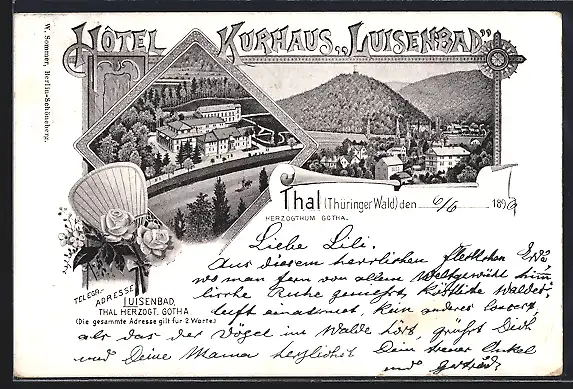 HÔTEL KURHAUS „LUISENBAD”
W. Sommer, Berlin-Schöneberg.
Thal (Thüringer Wald) den 6/6 189
HERZOGTHUM GOTHA.
TELEGR.-
ADRESSE
LUISENBAD,
THAL HERZOGT. GOTHA.
(Die gesammte Adresse gilt für 2 Worte)
Liebe Lili.
Aus diesem herrlichen Fleckchen Erde
wo man fern von allem Weltgewühl himm
lische Ruhe genießt, köstliche Waldes-
luft einatmet, kein anderes
als das der Vögel im Walde hört, grüßt Dich
und Deine Mama herzlichst Dein treuer Onkel
und